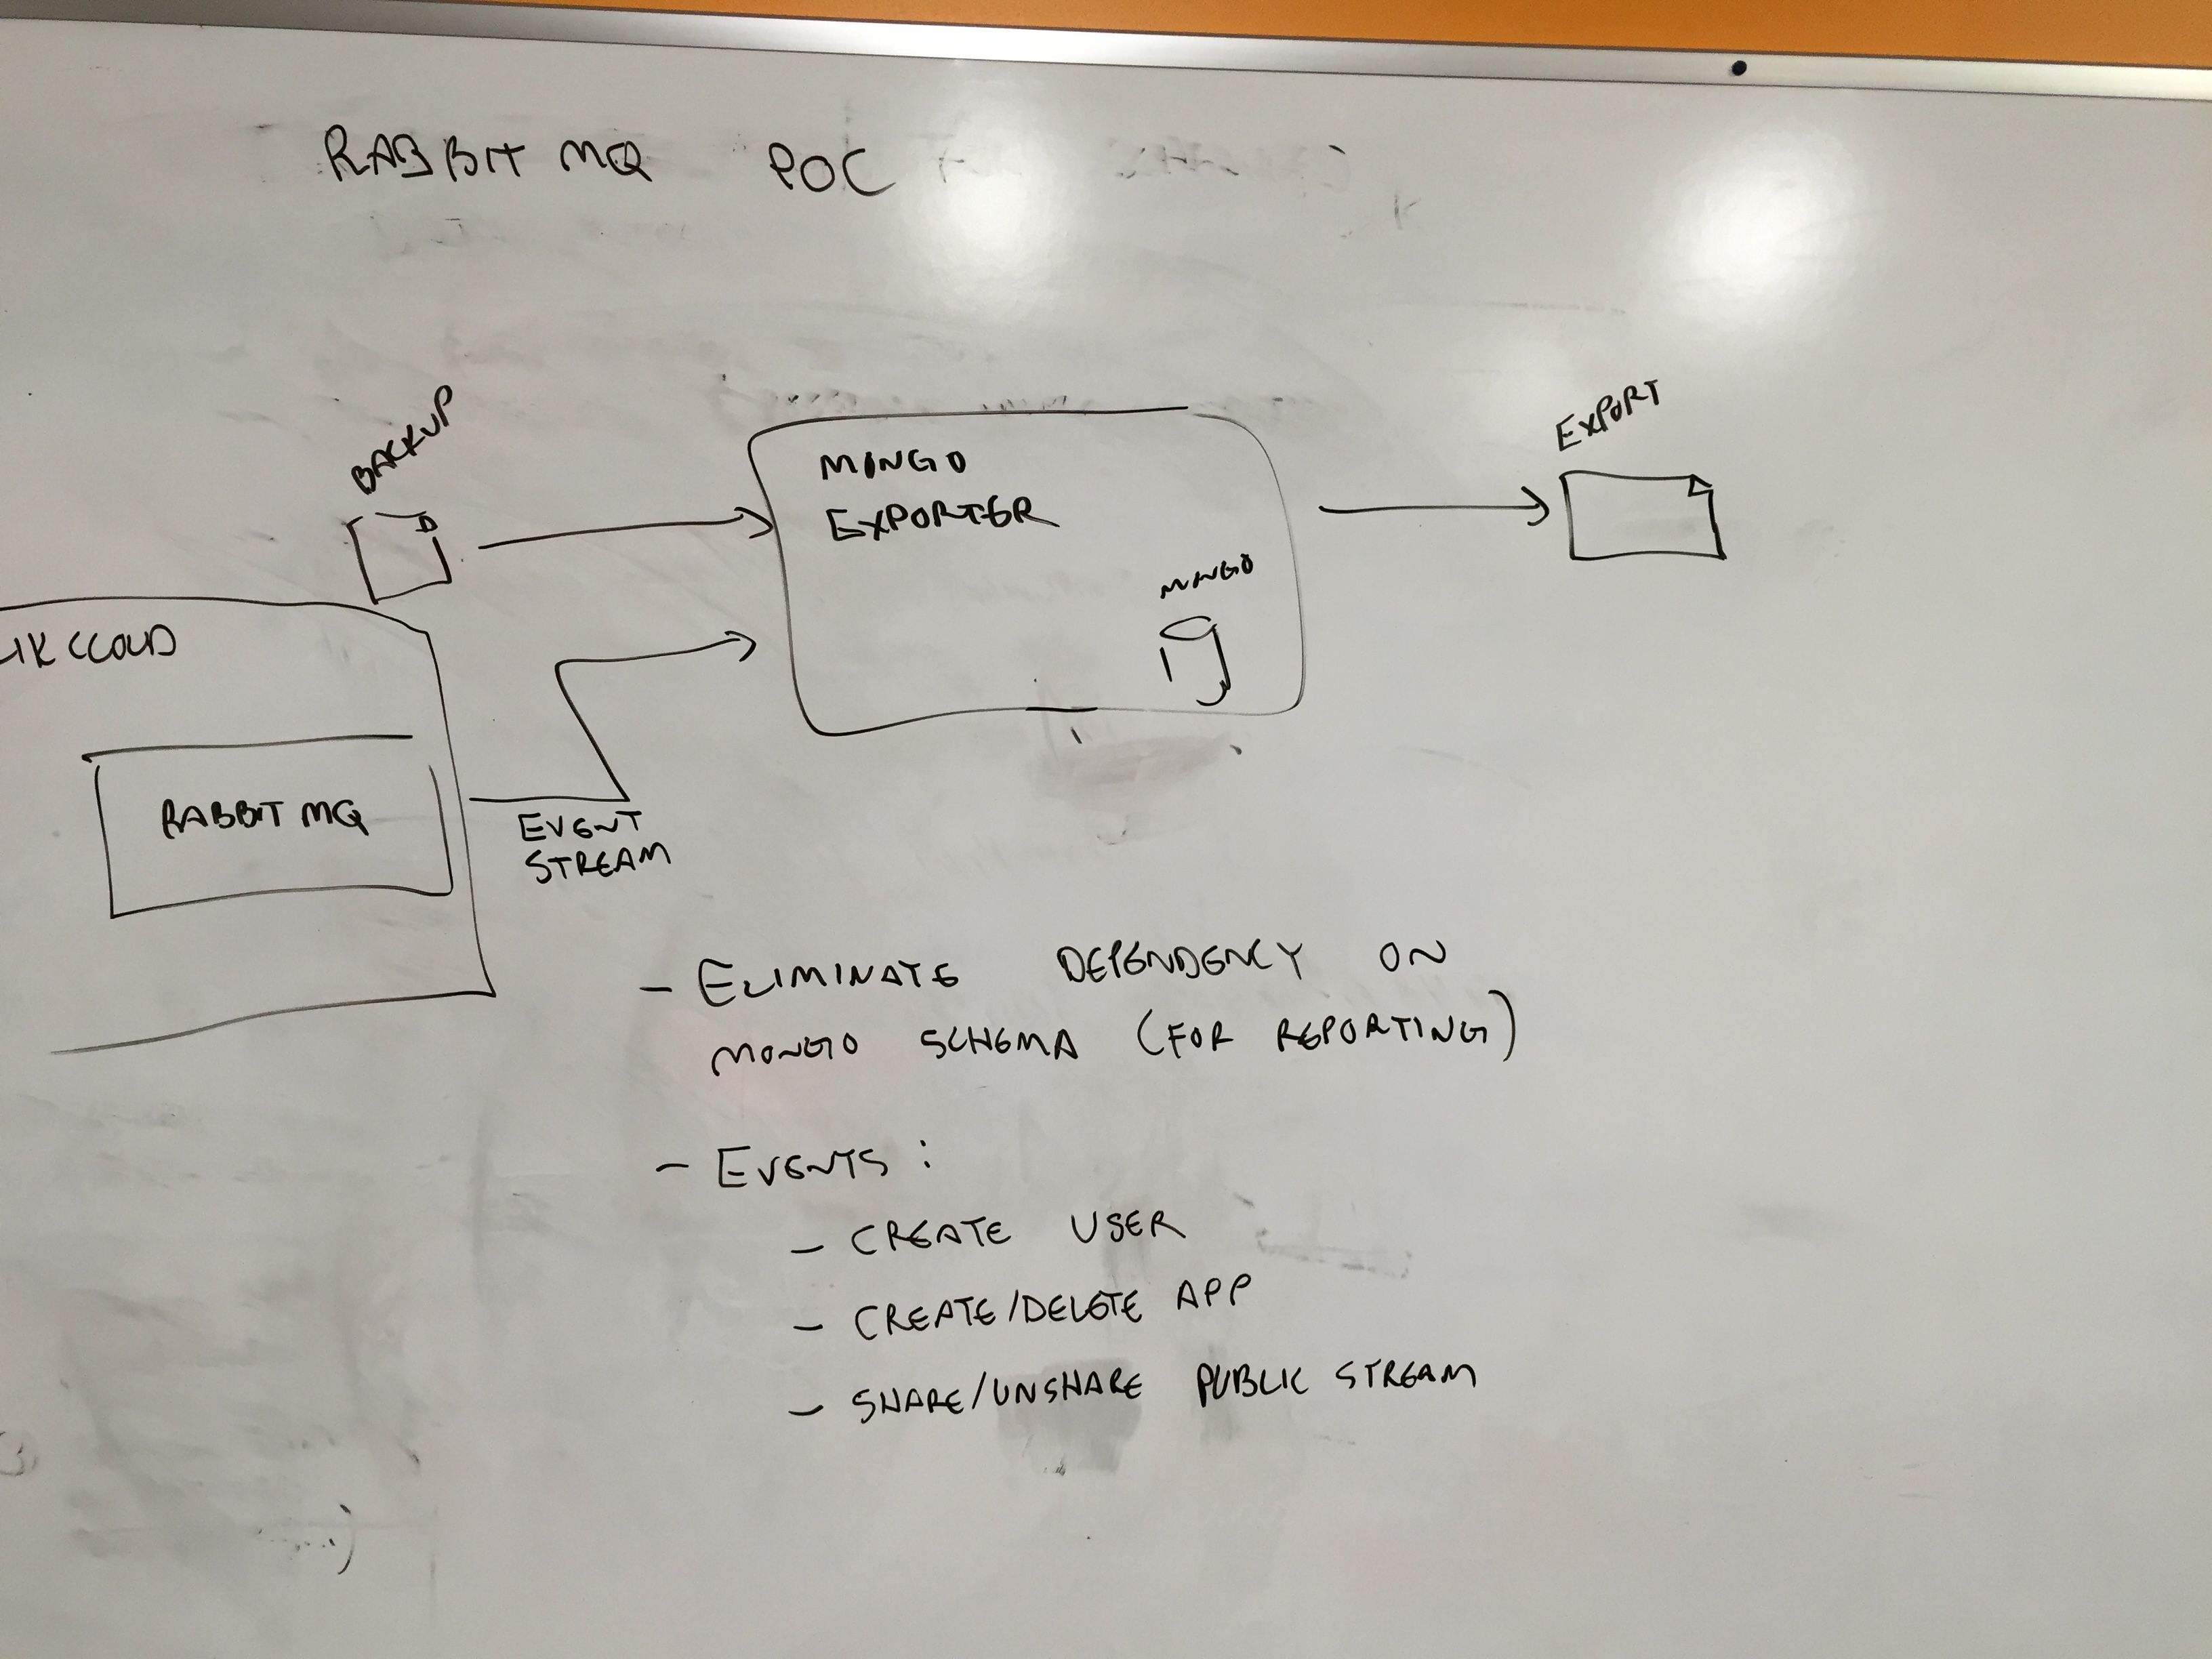 RABBIT MQ POC
BACKUP
EXPORT
MONGO
EXPORTER
MONGO
CLOUD
RABBIT MQ
EVENT
STREAM
- ELIMINATE DEPENDENCY ON
MONGO SCHEMA (FOR REPORTING)
- EVENTS:
- CREATE USER
- CREATE/DELETE APP
- SHARE/UNSHARE PUBLIC STREAM